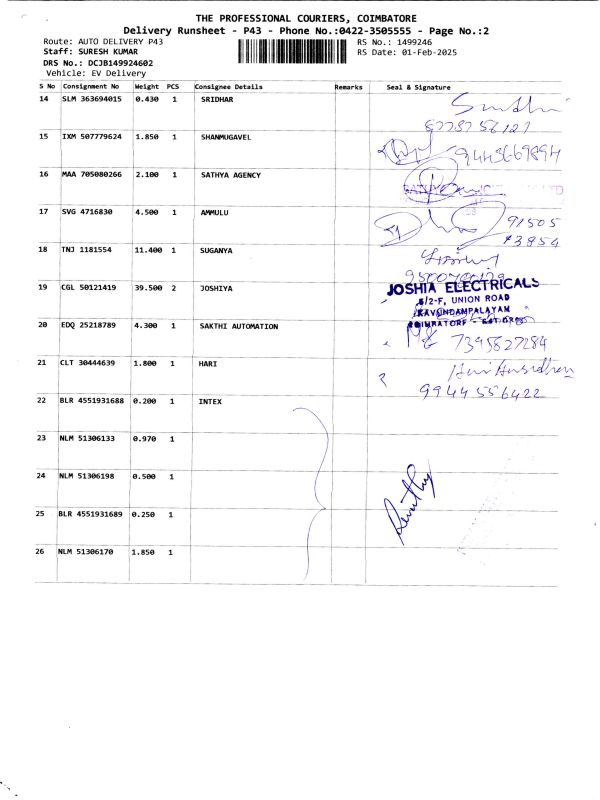 THE PROFESSIONAL COURIERS, COIMBATORE
Delivery Runsheet - P43 - Phone No.:0422-3505555 - Page No.:2
Route: AUTO DELIVERY P43
RS No.: 1499246
Staff: SURESH KUMAR
RS Date: 01-Feb-2025
DRS No.: DCJB149924602
Vehicle: EV Delivery
S No Consignment No Weight PCS Consignee Details Remarks Seal & Signature
14 SLM 363694015 0.430 1 SRIDHAR
15 IXM 507779624 1.850 1 SHANMUGAVEL
9443669894
16 MAA 705080266 2.100 1 SATHYA AGENCY
17 SVG 4716830 4.500 1 AMMULU
91505
73854
18 TNJ 1181554 11.400 1 SUGANYA
19 CGL 50121419 39.500 2 JOSHIYA
JOSHIA ELECTRICALS
5/2-F, UNION ROAD
KAVUNDAMPALAYAM
20 EDQ 25218789 4.300 1 SAKTHI AUTOMATION
COIMBATORE
7395827284
21 CLT 30444639 1.800 1 HARI
9944556422
22 BLR 4551931688 0.200 1 INTEX
23 NLM 51306133 0.970 1
24 NLM 51306198 0.500 1
25 BLR 4551931689 0.250 1
26 NLM 51306170 1.850 1